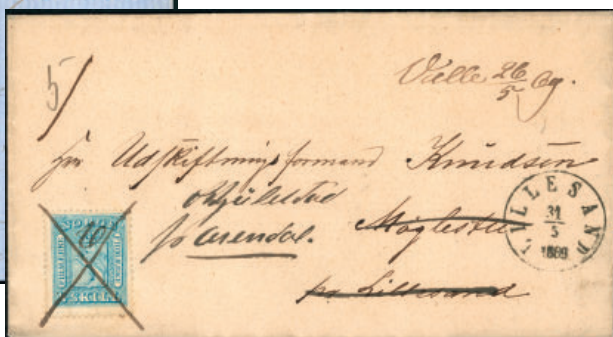 5/
Vælle 26/5 69.
Hr Udskiftningsformand Knudsen
p. Arendal.
Møglestu
pr Lillesand
LILLESAND
31
5
1869
10
NORGE
FRIMÆRKE
4 SKILL